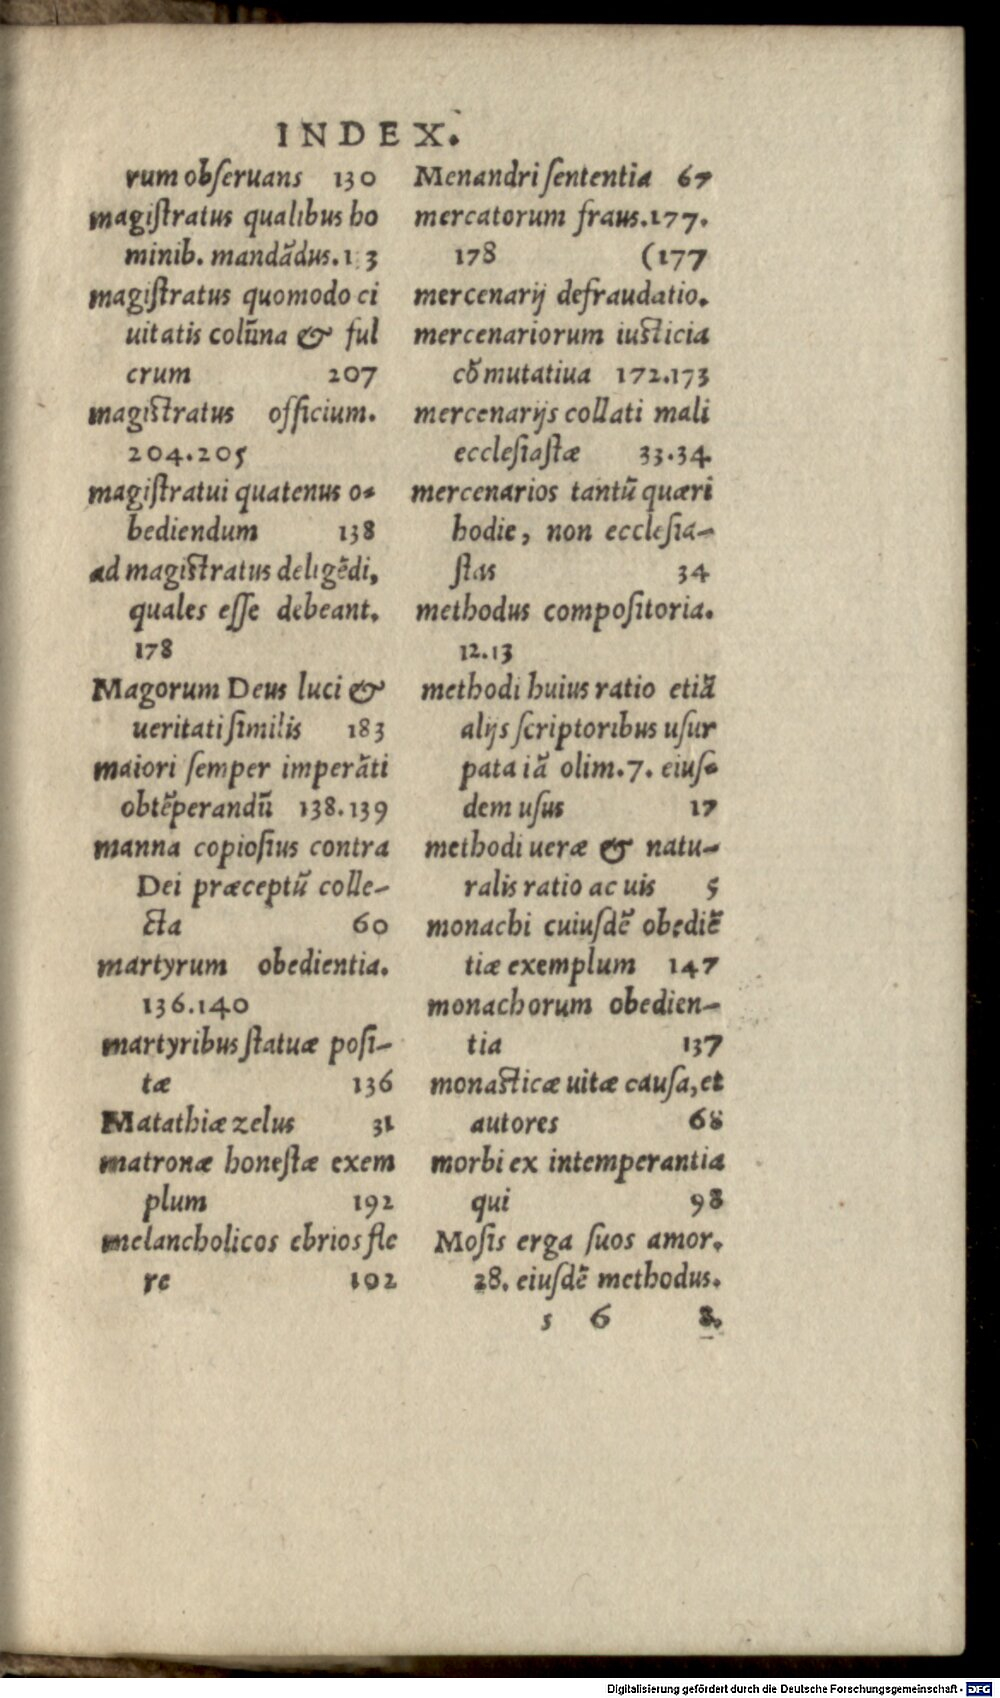 INDEX.
rum obſeruans 130
magiſtratus qualibus ho
minib. mandãdus. 1 3
magiſtratus quomodo ci
uitatis colũna & ful
crum 207
magiſtratus officium.
204.205
magiſtratui quatenus o-
bediendum 138
ad magiſtratus deligẽdi,
quales eſſe debeant.
178
Magorum Deus luci &
ueritati ſimilis 183
maiori ſemper imperãti
obtẽperandũ 138.139
manna copioſius contra
Dei præceptũ colle-
cta 60
martyrum obedientia.
136.140
martyribus ſtatuæ poſi-
tæ 136
Matathiæ zelus 31
matronæ honeſtæ exem
plum 192
melancholicos ebrios fle
re 102
Menandri ſententia 67
mercatorum fraus.177.
178 (177
mercenarij defraudatio.
mercenariorum iuſticia
cõmutatiua 172.173
mercenarijs collati mali
eccleſiaſtæ 33.34
mercenarios tantũ quæri
hodie, non eccleſia-
ſtas 34
methodus compoſitoria.
12.13
methodi huius ratio etiã
alijs ſcriptoribus uſur
pata iã olim.7. eiuſ-
dem uſus 17
methodi ueræ & natu-
ralis ratio ac uis 5
monachi cuiuſdẽ obediẽ
tiæ exemplum 147
monachorum obedien-
tia 137
monaſticæ uitæ cauſa, et
autores 68
morbi ex intemperantia
qui 98
Moſis erga ſuos amor.
28. eiuſdẽ methodus.
s 6 8.
Digitalisierung gefördert durch die Deutsche Forschungsgemeinschaft - DFG